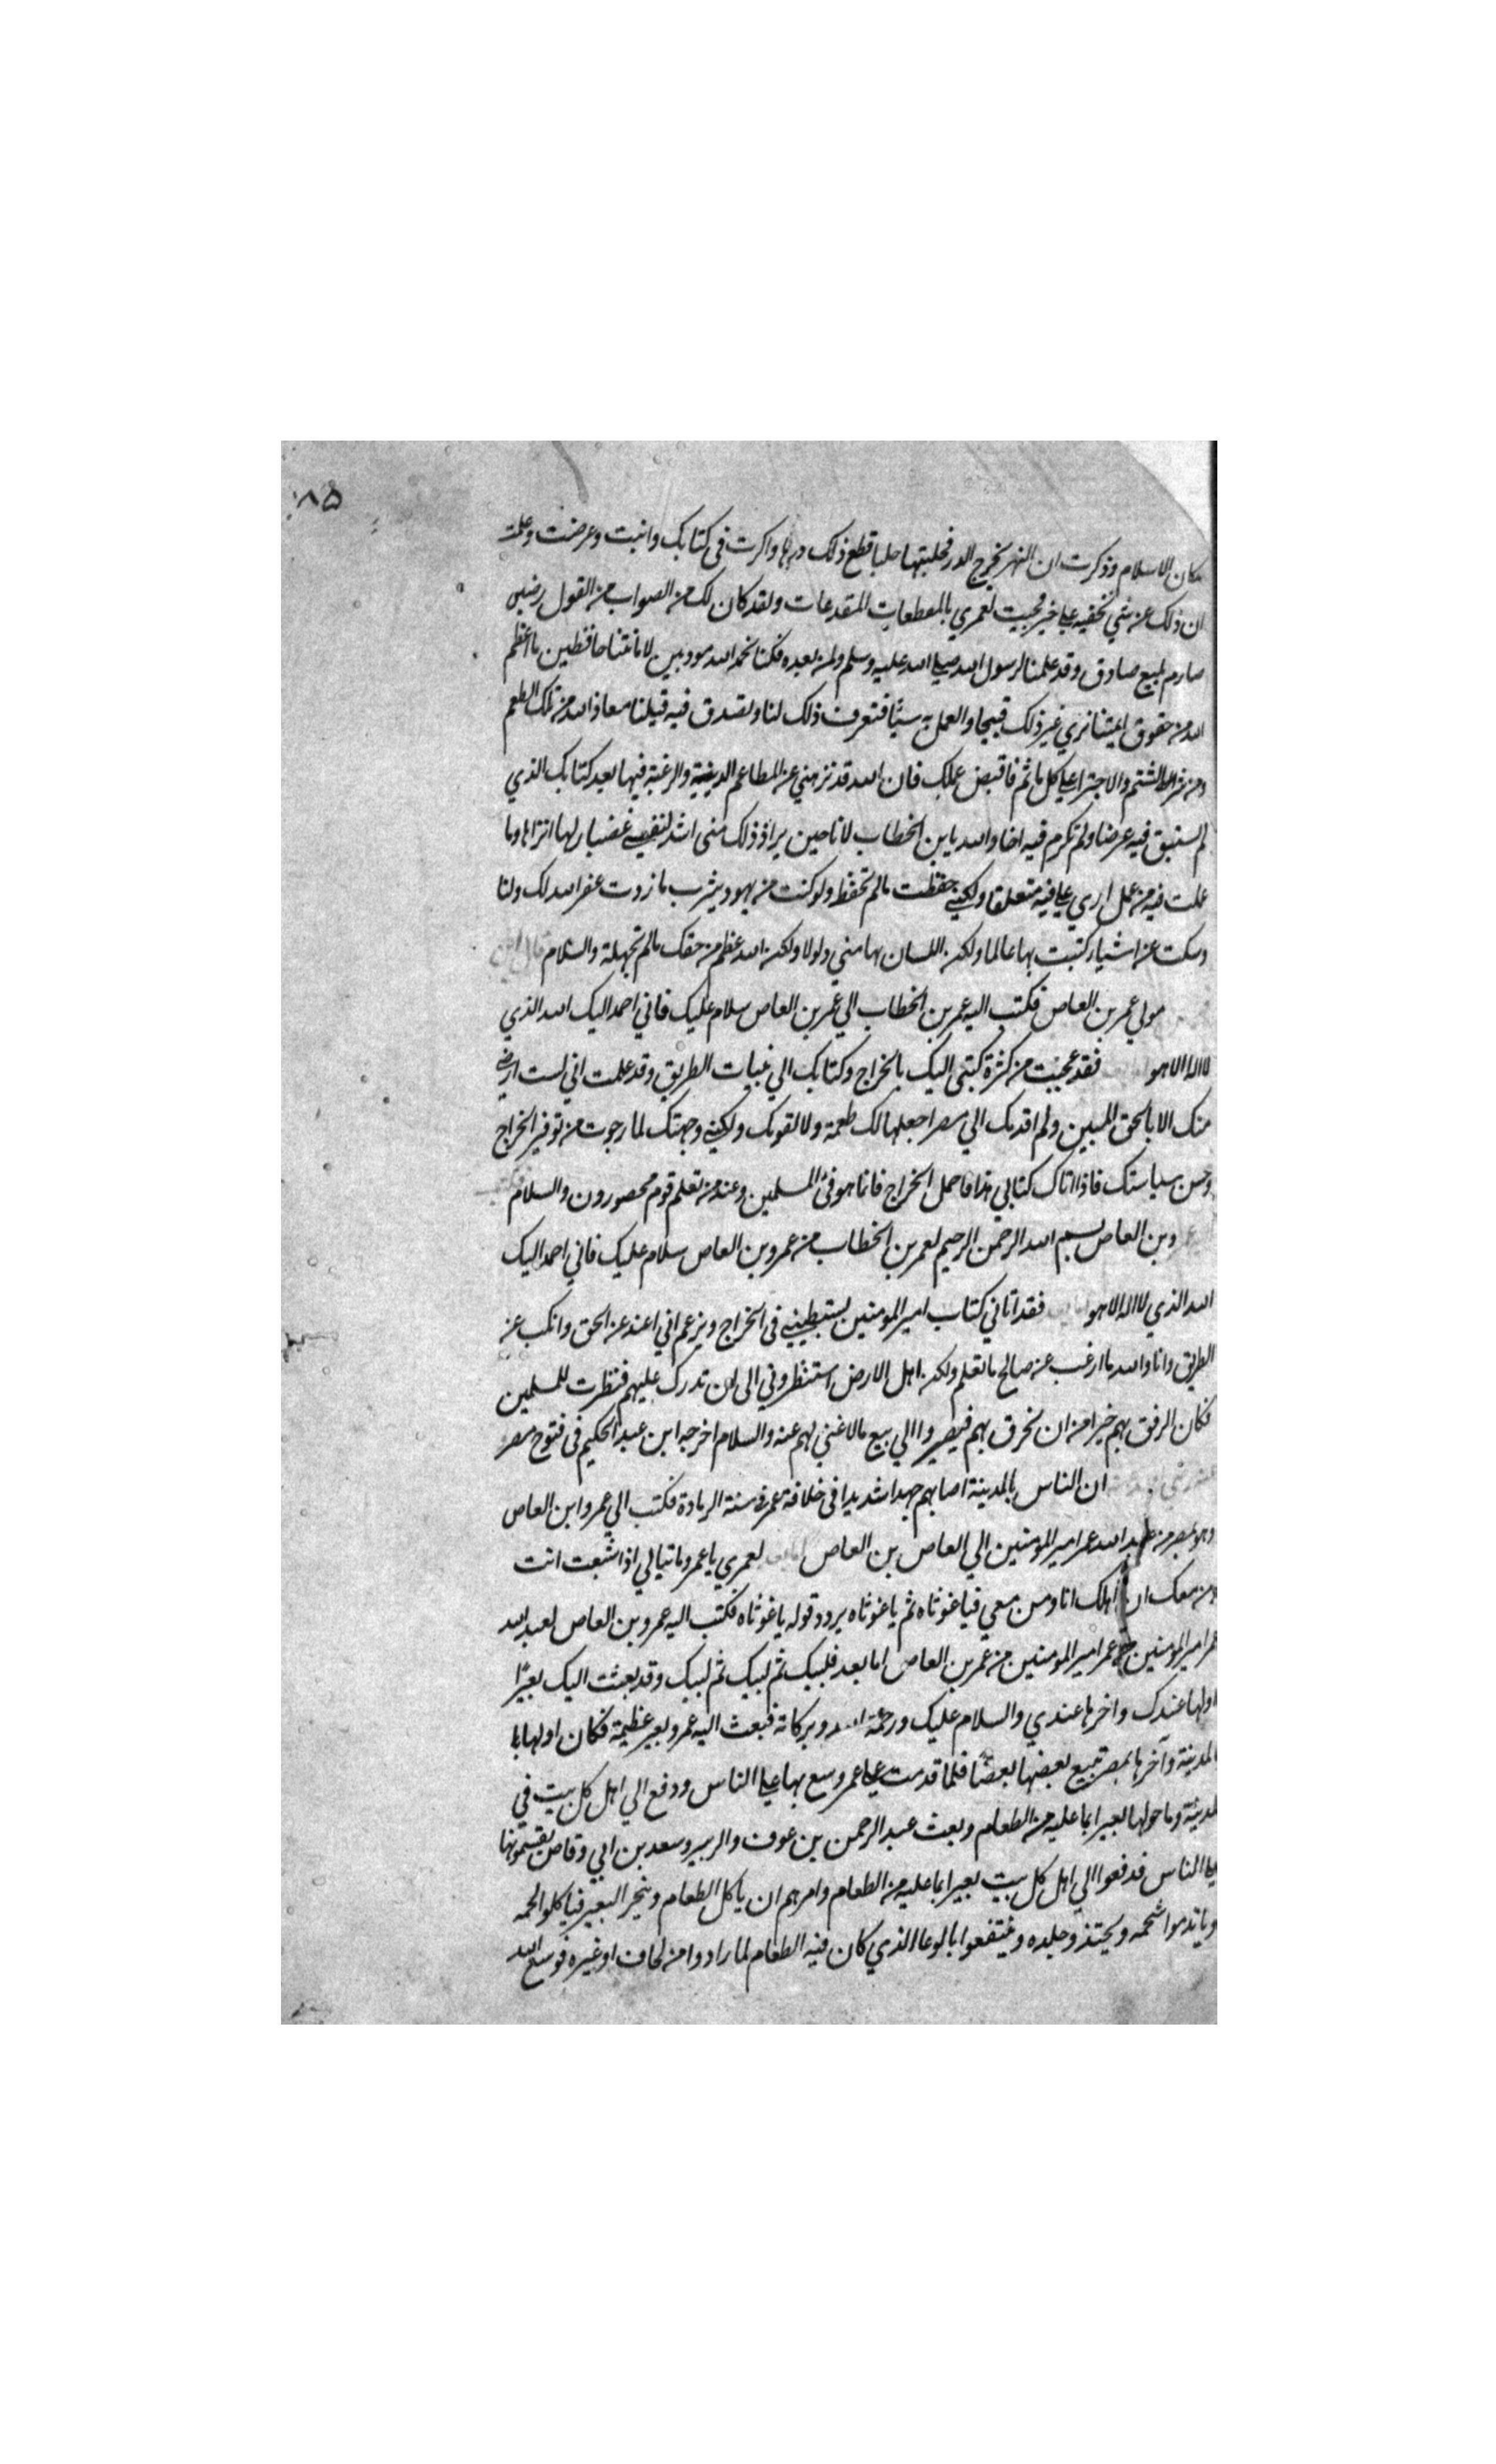 ١٨٥
مكان الاسلام وذكرت ان النهر يخرج الدر فحلبتها حلبا قطع ذلك درها واكثرت في كتابك وانبت وعرضت وعلمت
ان ذلك عن شي تخفيه علي خير فجيت لعمري بالمعطعات المقدعات ولقد كان لك من الصواب من القول رضين
صارم بليع صادق وقد علمنا لرسول الله صلي الله عليه وسلم ولمن بعده فكنا نحمد الله مودبين لامانتنا حافظين ما اعظم
الله من حقوق ايمتنا نري غير ذلك قبيحا والعمل به سيئا فتعرف ذلك لنا وتصدق فيه قيلنا معاذ الله من تلك الطعم
ومن شر الشتم والاجترا علي كل ماثم فاقبض عملك فان الله قد نزهني عن المطاعم الدنية والرغبة فيها بعد كتابك الذي
لم تستبق فيه عرضا ولم تكرم فيه اخا والله يابن الخطاب لانا حين يراد ذلك مني اشد لنفسي غضبا ولها انزاها وما
عملت فيه من عمل اري علي فيه متعلقا ولكني حفظت مالم تحفظ ولو كنت من يهود يثرب مازدت غفر الله لك ولنا
وسكت عن اشيا كتبت بها عالما ولكن اللسان بها مني ولولا ولكن الله عظم من حقك مالم تجهلة والسلام قال ابن
مولي عمر بن العاص فكتب اليه عمر بن الخطاب الي عمر بن العاص سلام عليك فاني احمد اليك الله الذي
لا اله الا هو فقد عجبت من كثرة كتبي اليك بالخراج وكتابك الي بنيات الطريق وقد علمت اني لست ارضي
منك الا بالحق المبين ولم اقدمك الي مصر اجعلها لك طعمة ولا لقومك ولكني وجهتك لما رجوت من توفير الخراج
وحسن سياستك فاذا اتاك كتابي هذا فاحمل الخراج فانما هو فئ المسلمين وعند من تعلم قوم محصورون والسلام
وبن العاص بسم الله الرحمن الرحيم لعمر بن الخطاب من عمرو بن العاص سلام عليك فاني احمد اليك
الله الذي لا اله الا هو فقد اتاني كتاب امير المومنين يستبطيني في الخراج ويزعم اني اعند عن الحق وانكب عن
الطريق وانا والله ما ارغب عن صالح ما تعلم ولكن اهل الارض استنظروني الي ان تدرك عليهم فنظرت للمسلمين
فكان الرفق بهم خيرا من ان نخرق بهم فيصيروا الي بيع مالا غني لهم عنه والسلام اخرجه ابن عبد الحكيم في فتوح مصر
ان الناس بالمدينة اصابهم جهد اشديدا في خلافة عمر في سنة الرمادة فكتب الي عمرو ابن العاص
وهو بمصر من عبد الله عمر امير المومنين الي العاص بن العاص لعمري يا عمرو ما تبالي اذا شبعت انت
ومن معك ان اهلك انا ومن معي فيا غوثاه ثم يا غوثاه يردد قوله يا غوثاه فكتب اليه عمرو بن العاص لعبد الله
عمر امير المومنين عمر امير المومنين من عمر بن العاص اما بعد فلبيك ثم لبيك ثم لبيك وقد بعثت اليك بعيرًا
اولها عندك واخرها عندي والسلام عليك ورحمة الله وبركاته فبعث اليه عمرو بعير عظيمة فكان اولها با
المدينة وآخرها بمصر تبيع بعضها بعضًا فلما قدمت علي عمر وسع بها علي الناس ودفع الي اهل كل بيت في
المدينة وما حولها بعيرا بما عليه من الطعام وبعث عبد الرحمن بن عوف والزبير وسعد بن ابي وقاص يقسمونها
علي الناس فدفعوا الي اهل كل بيت بعيرا بما عليه من الطعام وامرهم ان ياكل الطعام وينحر البعير فياكلوا لحمه
وياتدموا شحمه ويحتذ وجلده وينتفعوا بالوعا الذي كان فيه الطعام لما رادوا من لحاف او غيره فوسع الله